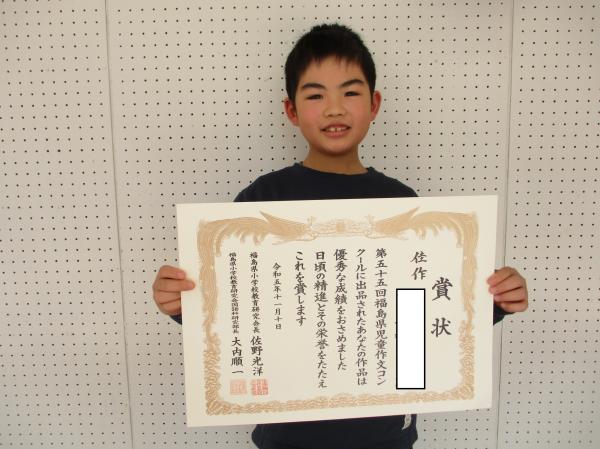 賞状
佳作
第五十五回福島県児童作文コン
クールに出品されたあなたの作品は
優秀な成績をおさめました
日頃の精進とその栄誉をたたえ
これを賞します
令和五年十一月十日
福島県小学校教育研究会長 佐野光洋
福島県小学校教育研究会国語科研究部長 大内順一